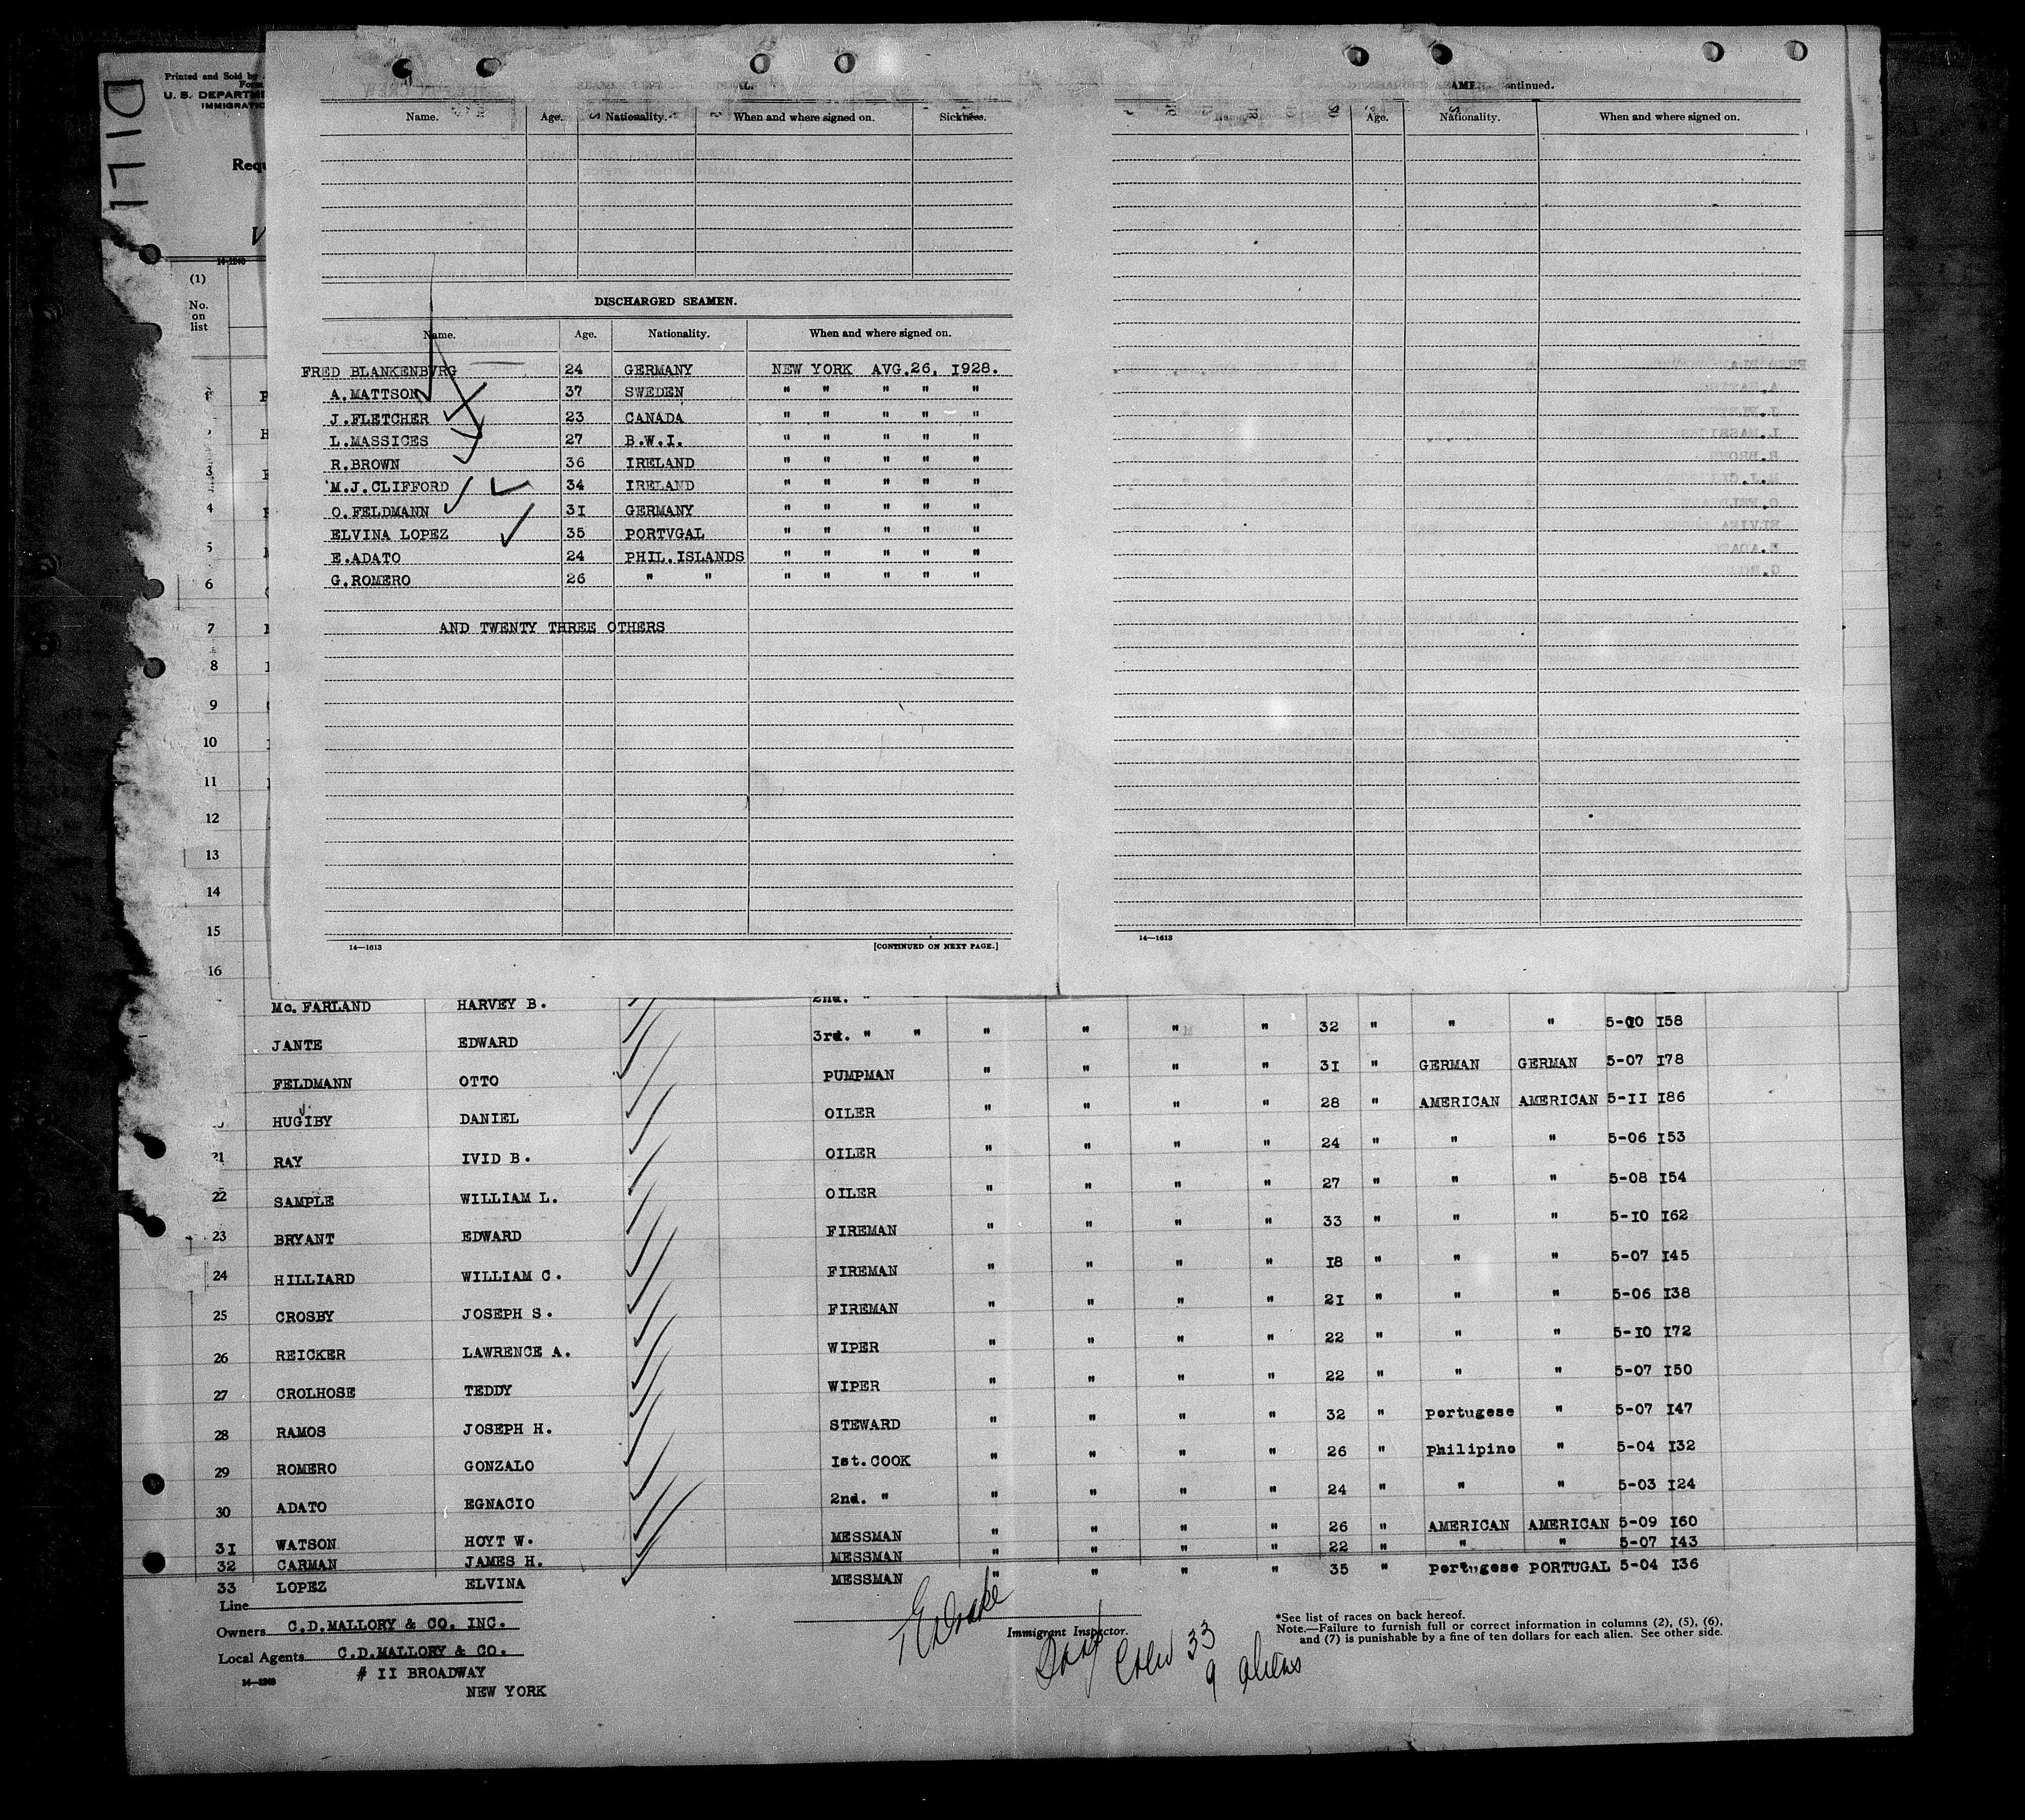 DILI
Printed and Sold by
Form
U. S. DEPARTME
IMMIGRATIO
Requ
14-1240
(1)
No.
on
list
Name. Age. Nationality. When and where signed on. Sickness.
DISCHARGED SEAMEN.
Name. Age. Nationality. When and where signed on.
FRED BLANKENBVRG 24 GERMANY NEW YORK AVG.26, 1928.
A.MATTSON 37 SWEDEN " " " " "
J.FLETCHER 23 CANADA " " " " "
L.MASSICES 27 B.W.I. " " " " "
R.BROWN 36 IRELAND " " " " "
M.J.CLIFFORD 34 IRELAND " " " " "
O.FELDMANN 31 GERMANY " " " " "
ELVINA LOPEZ 35 PORTVGAL " " " " "
E.ADATO 24 PHIL.ISLANDS " " " " "
G.ROMERO 26 " " " " " " "
AND TWENTY THREE OTHERS
14—1613 [CONTINUED ON NEXT PAGE.]
ontinued.
Age. Nationality. When and where signed on.
14—1613
3
4
5
6
7
8
9
10
11
12
13
14
15
16
Mc. FARLAND HARVEY B. 2nd. " "
JANTE EDWARD 3rd. " " " " " " 32 " " " 5-00 158
FELDMANN OTTO PUMPMAN " " " " 31 " GERMAN GERMAN 5-07 178
HUGIBY DANIEL OILER " " " " 28 " AMERICAN AMERICAN 5-11 186
21 RAY IVID B. OILER " " " " 24 " " " 5-06 153
22 SAMPLE WILLIAM L. OILER " " " " 27 " " " 5-08 154
23 BRYANT EDWARD FIREMAN " " " " 33 " " " 5-10 162
24 HILLIARD WILLIAM C. FIREMAN " " " " 18 " " " 5-07 145
25 CROSBY JOSEPH S. FIREMAN " " " " 21 " " " 5-06 138
26 REICKER LAWRENCE A. WIPER " " " " 22 " " " 5-10 172
27 CROLHOSE TEDDY WIPER " " " " 22 " " " 5-07 150
28 RAMOS JOSEPH H. STEWARD " " " " 32 " Portugese " 5-07 147
29 ROMERO GONZALO 1st. COOK " " " " 26 " Philipino " 5-04 132
30 ADATO EGNACIO 2nd. " " " " " 24 " " " 5-03 124
31 WATSON HOYT W. MESSMAN " " " " 26 " AMERICAN AMERICAN 5-09 160
32 CARMAN JAMES H. MESSMAN " " " " 22 " " " 5-07 143
33 LOPEZ ELVINA MESSMAN " " " " 35 " Portugese PORTUGAL 5-04 136
Line
Owners C.D.MALLORY & CO. INC.
Local Agents C.D.MALLORY & CO.
# 11 BROADWAY
NEW YORK
14—1240
Immigrant Inspector.
Crew 33
9 aliens
*See list of races on back hereof.
Note.—Failure to furnish full or correct information in columns (2), (5), (6),
and (7) is punishable by a fine of ten dollars for each alien. See other side.